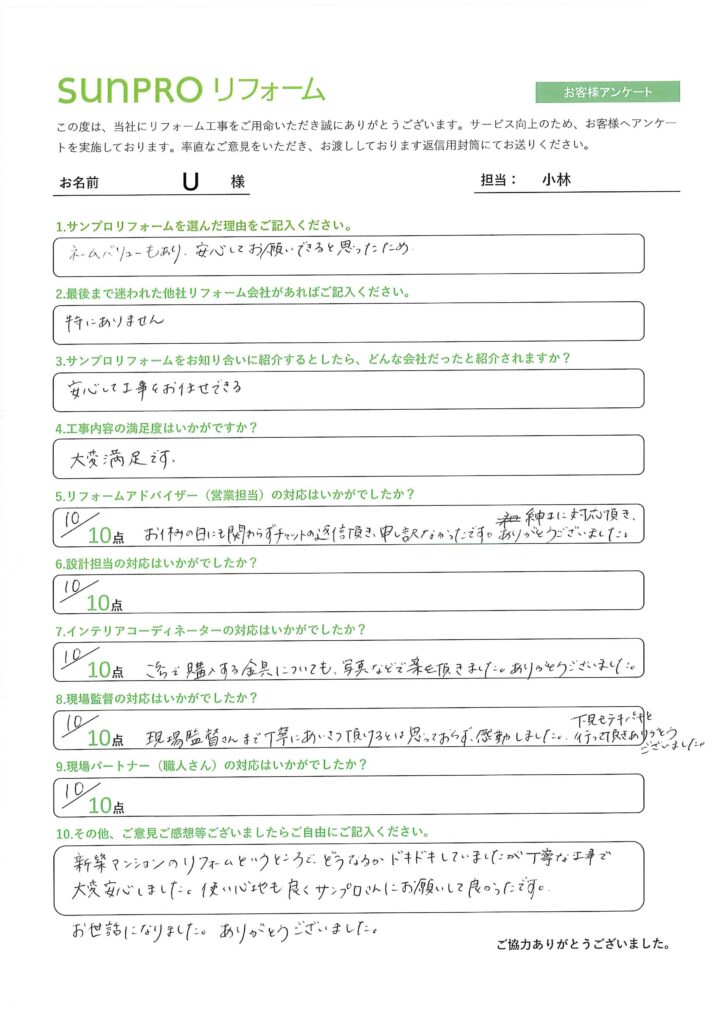 SUNPRO リフォーム
お客様アンケート
この度は、当社にリフォーム工事をご用命いただき誠にありがとうございます。サービス向上のため、お客様へアンケー
トを実施しております。率直なご意見をいただき、お渡ししております返信用封筒にてお送りください。
お名前 U 様 担当： 小林
1.サンプロリフォームを選んだ理由をご記入ください。
ネームバリューもあり、安心してお願いできると思ったため
2.最後まで迷われた他社リフォーム会社があればご記入ください。
特にありません
3.サンプロリフォームをお知り合いに紹介するとしたら、どんな会社だったと紹介されますか？
安心して工事をお任せできる
4.工事内容の満足度はいかがですか？
大変満足です。
5.リフォームアドバイザー（営業担当）の対応はいかがでしたか？
10/10点 お休みの日にも関わらずチャットの返信頂き、申し訳なかったです。紳士に対応頂き、
ありがとうございました。
6.設計担当の対応はいかがでしたか？
10/10点
7.インテリアコーディネーターの対応はいかがでしたか？
10/10点 購入する金具についても、写真などで案を頂きました。ありがとうございました。
8.現場監督の対応はいかがでしたか？
10/10点 現場監督さんまで丁寧にあいさつ頂けるとは思っておらず、感動しました。下見もテキパキと
行って頂きありがとう
ございました。
9.現場パートナー（職人さん）の対応はいかがでしたか？
10/10点
10.その他、ご意見ご感想等ございましたらご自由にご記入ください。
新築マンションのリフォームというところで、どうなるかドキドキしていましたが丁寧な工事で
大変安心しました。使い心地も良くサンプロさんにお願いして良かったです。
お世話になりました。ありがとうございました。
ご協力ありがとうございました。